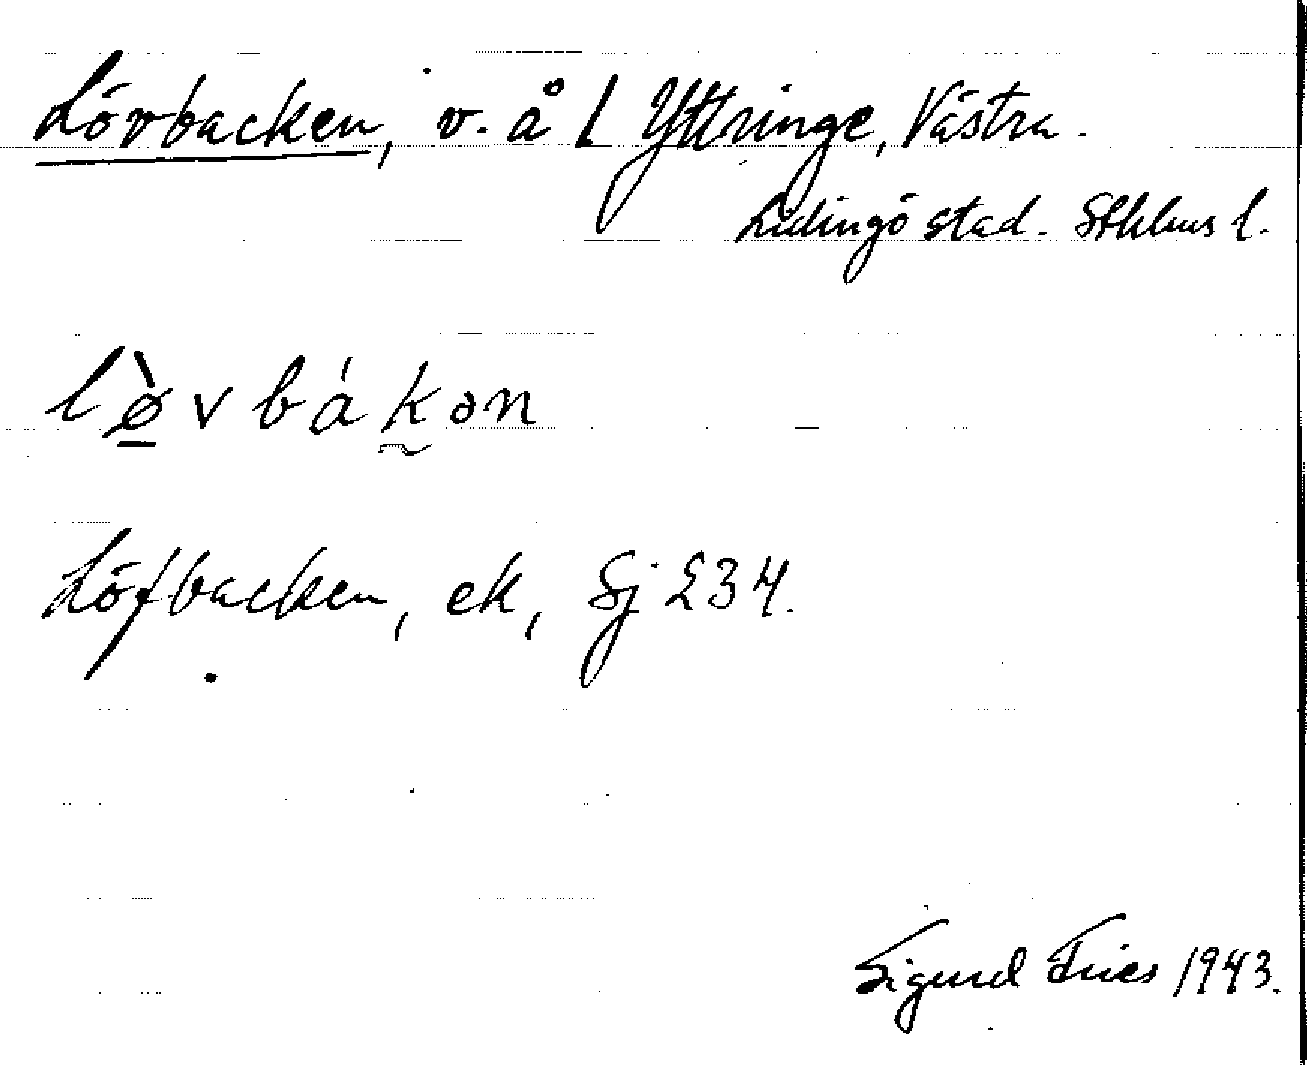 Lövbacken, v. å l Yttringe, Västra.
Lidingö stad. Sthlms l.
lø̱̀vbákən
Löfbacken, ek, Sj 234.
Sigurd Fries 1943.